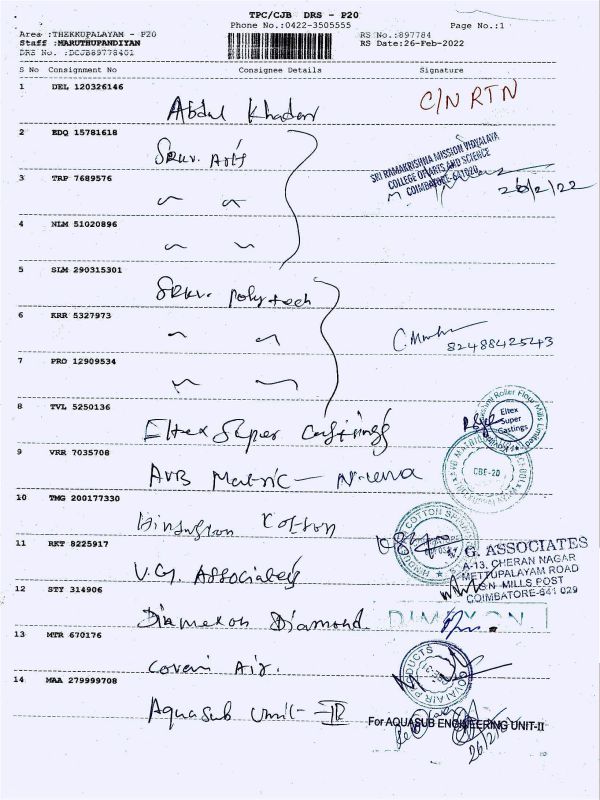 TPC/CJB DRS - P20
Phone No.:0422-3505555
Page No.:1
Area :THEKKUPALAYAM - P20
RS No.:897784
Staff :MARUTHUPANDIYAN
RS Date:26-Feb-2022
DRS No. :DCJB89778401
S No Consignment No Consignee Details Signature
1 DEL 120326146
Abdul Khader
C/N RTN
2 BDQ 15781618
Srkv. Arts
SRI RAMAKRISHNA MISSION VIDYALAYA
COLLEGE OF ARTS AND SCIENCE
COIMBATORE-641020
26/2/22
3 TRP 7689576
4 NLM 51020896
5 SLM 290315301
Srkv. polytech
6 KRR 5327973
8248842543
7 PRO 12909534
8 TVL 5250136
Eltex Super Castings
Eltex
Super
Castings
9 VRR 7035708
AVB Matric -
CBE-20
10 TMG 200177330
Cotton
COTTON
11 RKT 8225917
V.G. Associates
G. ASSOCIATES
A-13, CHERAN NAGAR
METTUPALAYAM ROAD
S.N. MILLS POST
COIMBATORE-641 029
12 STY 314906
Diamond
13 MTR 670176
Air.
14 MAA 279999708
Aquasub Unit - II
For AQUASUB ENGINEERING UNIT-II
26/2/22